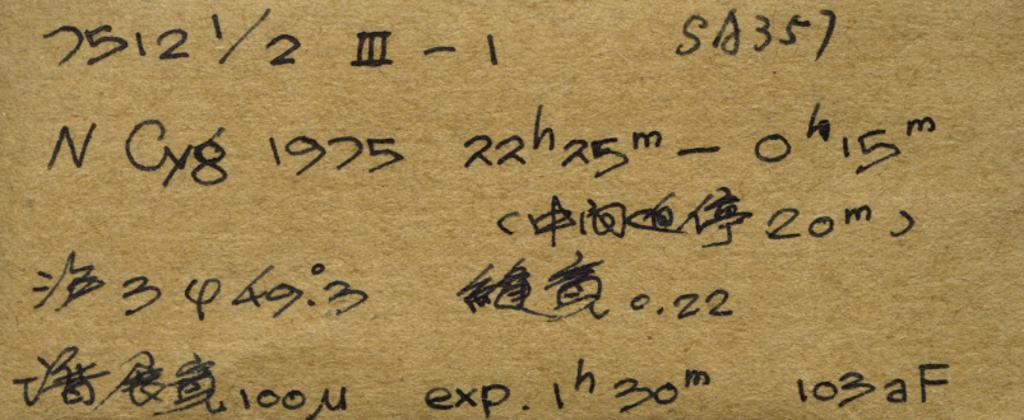 7512 1/2 III - 1 SA357
N Cyg 1975 22ʰ25ᵐ - 0ʰ15ᵐ
(中间 停 20ᵐ)
3 φ 49.°3 縫宽 0.22
谱展宽 100μ exp. 1ʰ30ᵐ 103aF